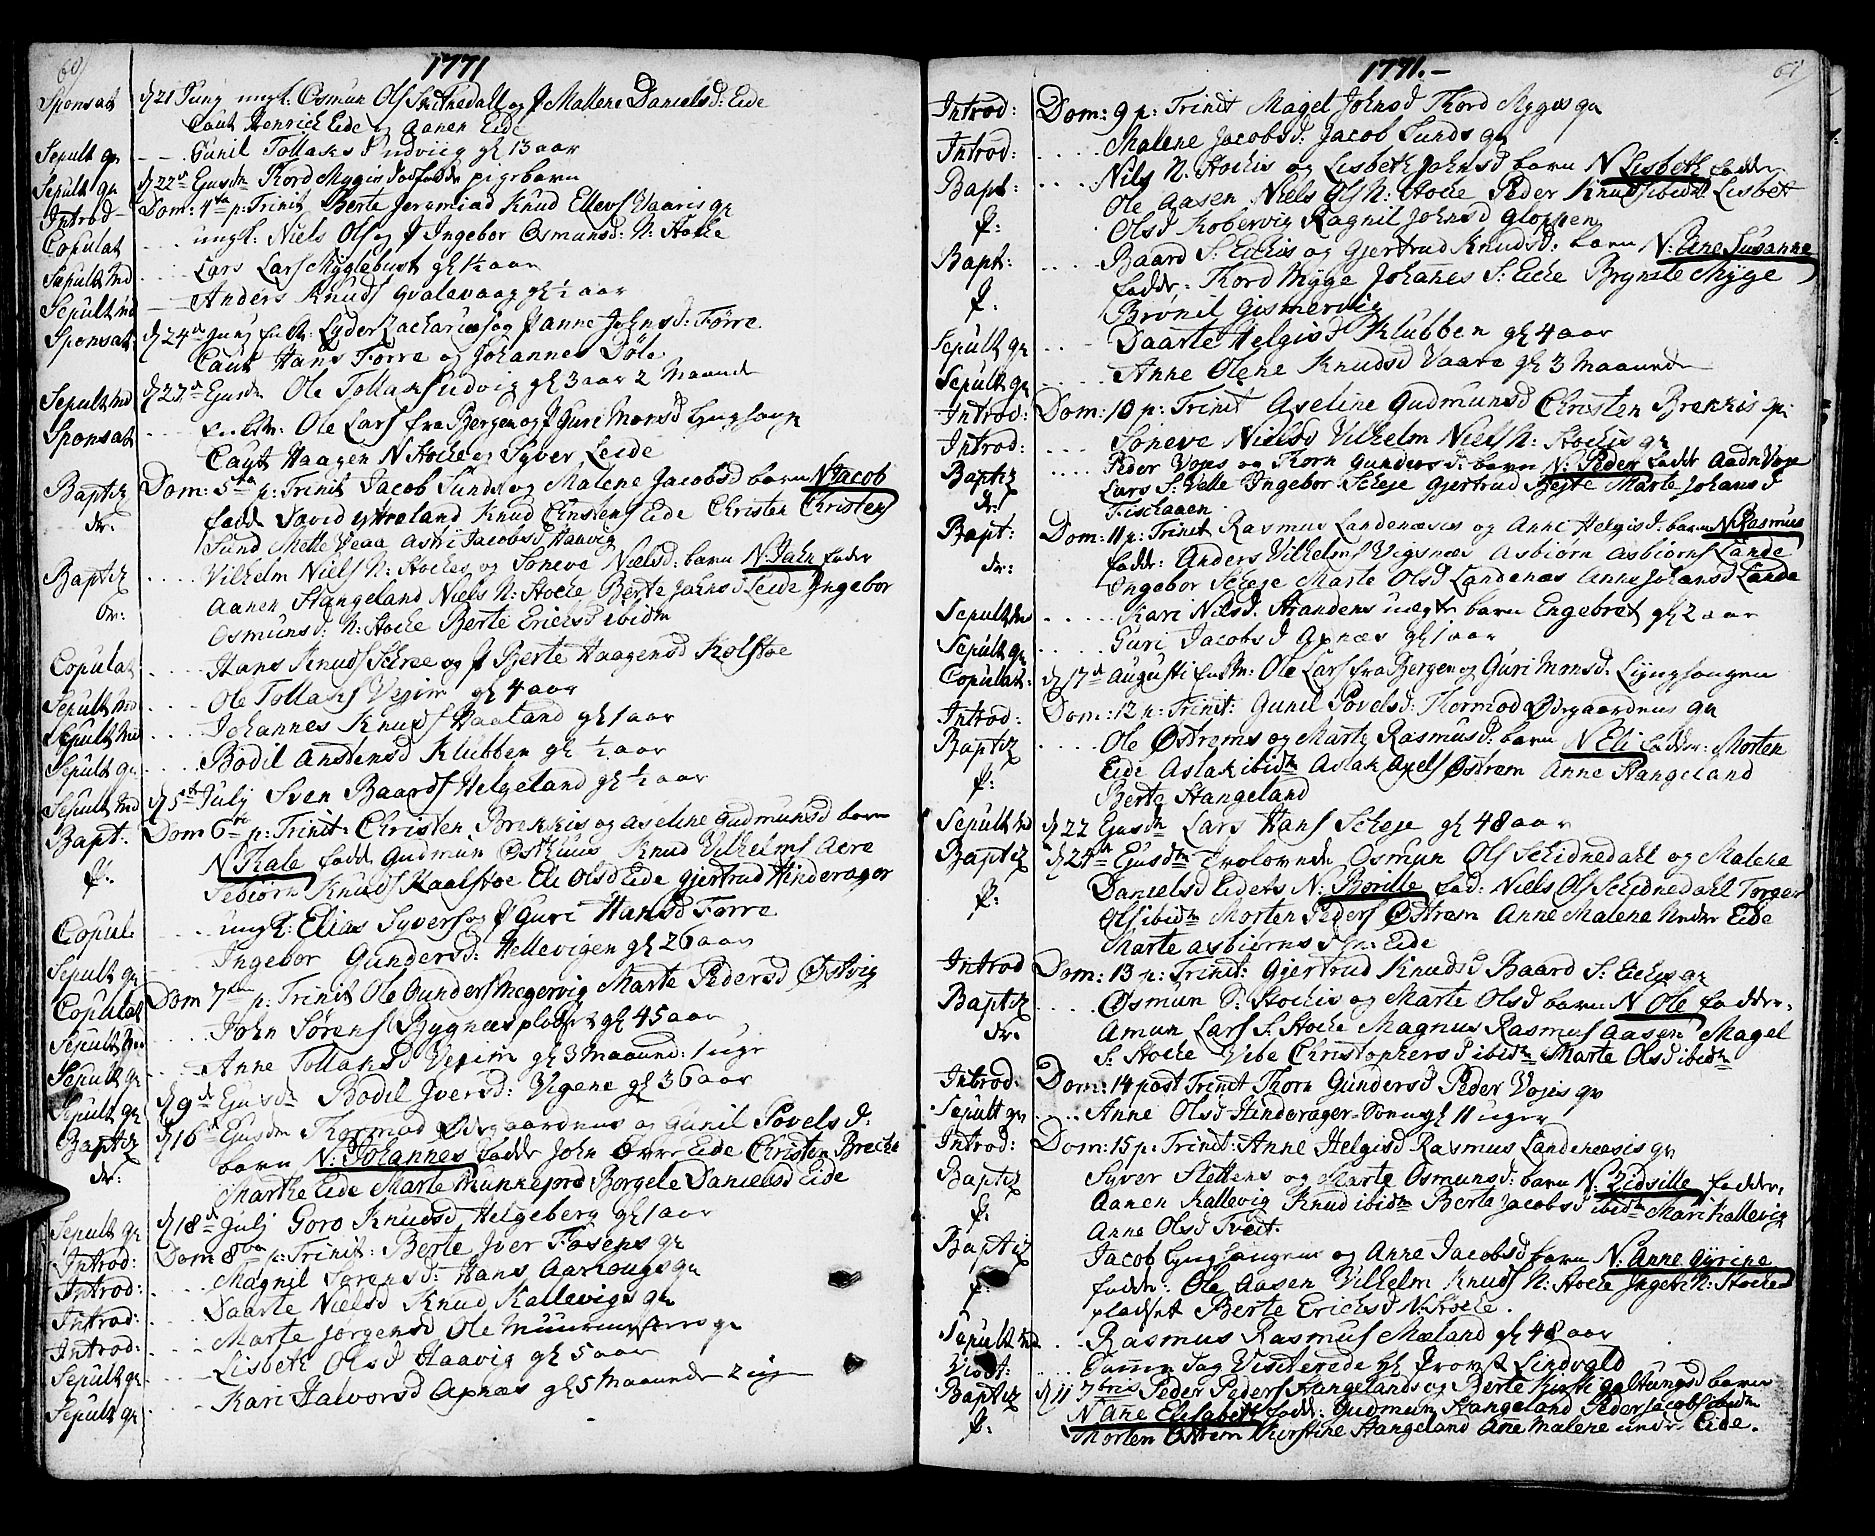 60
1771
Sponsat d 21 Jung ungk: Osmun Ols Skitnedall og P Mallene Danielsd: Eide
Caut Henrich Eide og Aanen Eide
Sepult qv - - - Gunil Tollaks d Udviig gl 13 aar
Sepult qv d 22 Ejusdm Thord Mygis dødfødde pigebarn
Introd - Dom: 4ta p: Trinit Berte Jeremiad Knud Ellevs Vaaris qv
Copulat - - - ungk: Niels Ols og P Ingebor Osmunsd: N: Stocke
Sepult Md - - - Lars Lars Myglebust gl 1½ aar
Sepult Md - - - Anders Knuds Qvalevaag gl ½ aar
Sponsat: d 24de Jung Enkm: Lyder Zacharias og P Anne Johnsd: Førre
Caut Hans Førre og Johannes Døle
Sepult Md d 27de Ejusdm Ole Tollaks Udvig gl 3 aar 2 Maaneder
Sponsat - - - Ole Lars fra Bergen og P Guri Monsd Lyngsongn
Caut Haagen N Stocke og Syver Leide
Baptiz Dom: 5ta p: Trinit Jacob Sunds og Malene Jacobsd barn N Jacob
dr: fadd David ytreland Knud Einstens Eide Christen Christens
Sund Mette Veaa Astri Jacobsd Haavig
Baptiz - - - Vilhelm Niels N: Stockes og Søneve Nielsd: barn N: Jahn fadr
dr: Aanen Stangeland Niels N: Stocke Berte Johnsd Leide Ingebor
Osmunsd: N: Stocke Berte Ericsd ibidm
Copulat: - - - Hans Knuds Schree og P Berte Haagensd Kolstøe
Sepult Md - - - Ole Tollaks Veiim gl 4 aar
Sepult Md - - - Johannes Knuds Haaland gl 1 aar
Sepult qv - - - Bodil Andsensd Klubben gl ½ aar
Sepult Md d 5te Julj Sven Baards Helgeland gl ½ aar
Bapt: Dom 6te p: Trinit: Christen Brekkis og Aseline Gudmunsd barn
P: N Thale fadd Gudmun Østhuus Knud Vilhelms Acre
Sebiørn Knuds Kaalstøe Eli Olsd Eide Gjertrud Hinderager
Copul. - - - ungk: Elias Syvers og P Guri Hansd Førre
Sepult qv - - - Ingebor Gundersd: Hellevigen gl 26 aar
Copulat Dom 7ma p: Trinit Ole Gunders Megervig Marte Pedersd Østvig
Sepult Md - - - John Sørens Bygnæs pladset gl 45 aar
Sepult qv - - - Anne Tollaksd Veiim gl 3 Maaned: 1 uge
Sepult qv d 9de Ejusdm Bodil Iversd: Vigene gl 36 aar
Baptiz d 16 Ejusdm Thormod Ødegaardens og Gunil Povels d:
dr: barn N: Johannes fadde John Øvre Eide Christen Brecke
Marthe Eide Marte Munkejord Borgele Danielsd Eide
Sepult qv d 18de Julj Goro Knudsd Helgeberg gl 1 aar
Introd: Dom 8va p: Trinit: Berte Iver Fosens qv
Introd: - - - Magnil Sørensd: Hans Aarhougs qv
Introd: - - - Daarte Nielsd Knud Kallevigs qv
Introd: - - - Marte Jørgensd Ole Muurmesters qv
Sepult qv - - - Lisbeth Olsd Haavig gl 5 aar
Sepult qv - - - Kari Halvorsd Apnæs gl 5 Maaneder 2 uger
1771.- 61
Introd: Dom: 9 p: Trinit Magel Johnsd Thord Mygis qv
Introd: - - - Malene Jacobsd: Jacob Sunds qv
Bapt: - - - Nils N. Stockis og Lisbeth Johnsd barn N Lisbeth fadde
P: Ole Aasen Niels Ols N: Stocke Peder Knuds ibidm Lisbet
Olsd Kobervig Ragnil Johnsd Gloppen
Bapt: - - - Baard S. Eickis og Gjertrud Knudsd: barn N: Ane Susanne
P: fadde: Thord Mygge Johanes S: Eicke Brynile Mygge
Brønil Gismervig
Sepult qv - - - Daarte Helgisd Klubben gl 4 aar
Sepult qv - - - Anne Olene Knudsd Vaare gl 3 Maaneder
Introd: Dom: 10 p: Trinit Aseline Gudmunsd Christen Brekkis qv:
Introd: - - - Søneve Nielsd Vilhelm Niels N: Stockis qv
Baptiz - - - Peder Vojes og Thorn Gundersd: barn N: Peder fadde Aadn Voje
dr: Lars S: Valle Ingebor Scheje Gjertrud Bøyte Marte Johansd
Fischaaen.
Bapt: Dom: 11 p: Trinit Rasmus Landenæses og Anne Helgisd: barn N: Rasmus
dr: fadder: Anders Vilhelms Vigsnæs Asbiørn Asbiørns Lande
Ingebor Scheje Marte Olsd Landenæs Anne Johansd Lande
Sepult Md - - - Kari Nilsd: Strandens uægte barn Engebret gl 2 aar
Sepult qv - - - Guri Jacobsd Apnæs gl 1 aar
Copulat: d 17de Augusti Enkm: Ole Lars fra Bergen og Guri Monsd: Lyngsongen
Introd: Dom: 12 p: Trinit: Gunil Povelsd: Thormod Ødegaardens qv
Baptiz - - - Ole Østrems og Marte Rasmusd: barn N Eli fadder: Morten
P: Eide Aslak ibidm Aslak Axels Østrem Anne Stangeland
Berte Stangeland
Sepult Md d 22 Ejusdm Lars Hans Scheje gl 48 aar
Baptiz d 24de Ejusdm Trolovede Osmun Ols Schidnedahl og Malene
P: Danielsd Eides N: Borille fad: Niels Ols Schidnedahl Torger
Ols ibidm Morten Peders Østrem Anne Malene Neder Eide
Marte Asbiørnsd Eide
Introd Dom: 13 p: Trinit: Gjertrud Knudsd Baard S: Eickis qv
Baptiz - - - Osmun S: Stockis og Marte Olsd barn N Ole fadder,
dr. Amun Lars S: Stocke Magnus Rasmus Aasen Magel
S: Stocke Vibe Christophersd ibidm Marte Olsd ibidm
Introd: Dom: 14 post Trinit Thorn Gundersd Peder Vojes qv
Sepult qv - - - Anne Olsd Hinderager gl 11 uger
Introd: Dom: 15 p: Trinit: Anne Helgisd Rasmus Landenæsis qv
Baptiz Syver Slettens og Marte Osmunsd: barn N: Zidsille fadder,
P: Aanen Kallevig Knud ibidm Berte Jacobsd ibidm Mari Kallevig
Anne Olsd Tveit.
Baptiz Jacob Lyngsongens og Anne Jacobsd barn N: Anne Gyrine
P: fadder: Ole Aasen Vilhelm Knuds N: Stocke Inger N: Stocke
pladset Berte Ericksd N: Stocke.
Sepult Md Rasmus Rasmus Meland gl 48 aar
Visit: Samme Dag Visiterede Hr Provst Lindvald
Baptiz d 11 7bris Peder Peders Stangelands og Berte Kirsti Galtungsd barn
P: N Ane Elisabeth fadd: Gudmun Stangeland Peder Jacobs ibidm
Morten Østrem Kirstine Stangeland Ane Malene nedr Eide.